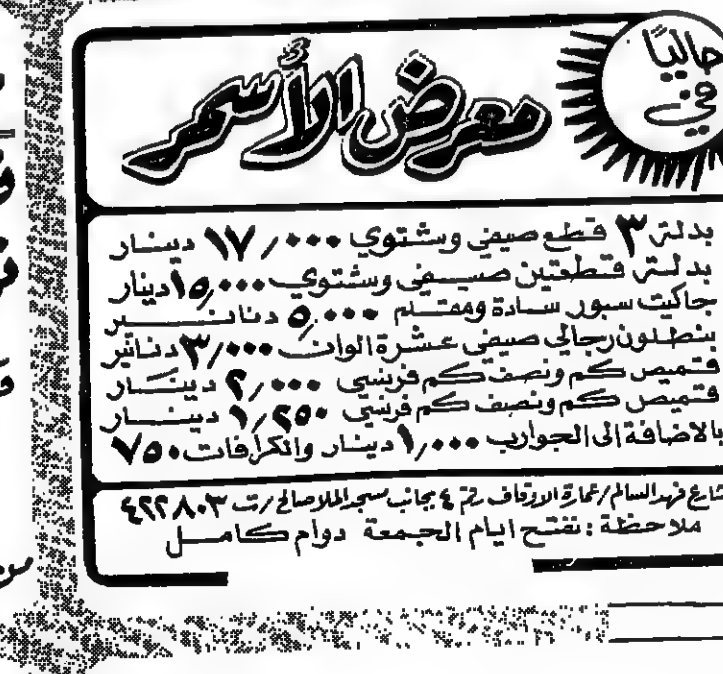 حاليًا
في
معرض الأسمر
بدلة ٣ قطع صيفي وشتوي ١٧/٠٠٠ دينار
بدلة قطعتين صيفي وشتوي ١٥,٠٠٠ دينار
جاكيت سبور سادة ومقلم ٥,٠٠٠ دنانير
بنطلون رجالي صيفي عشرة الوان ٣/٠٠٠ دنانير
قميص كم ونصف كم فرنسي ٢/٠٠٠ دينار
قميص كم ونصف كم فرنسي ١/٢٥٠ دينار
بالاضافة الى الجوارب ١,٠٠٠ دينار والكرافات ٧٥٠
شارع فهد السالم / عمارة الاوقاف رقم ٤ بجانب مسجد الملا صالح / ت ٤٢٢٨٠٣
ملاحظة : نفتح ايام الجمعة دوام كامل